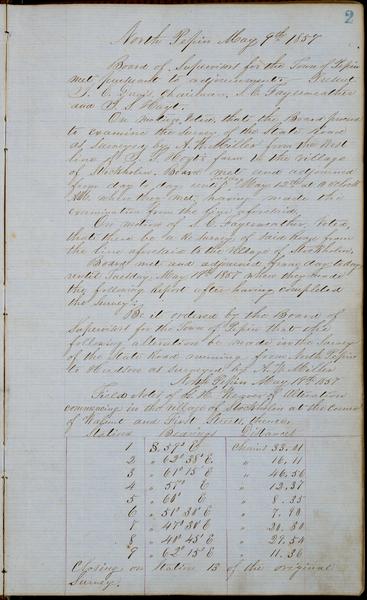 2
North Pepin May 9th 1857
Board of Supervisors for the Town of Pepin
met pursuant to adjournment. Present
Chairman, S. C. Fayerweather
and
On motion Voted, that the Board proceed
to examine the Survey of the State Road
as surveyed by A. W. Miller from the West
line of Hoyt's farm to the village
of Stockholm. Board met and adjourned
from day to day until May 12th at
A.M. when they met, having made the
examination from the line aforesaid.
On motion of S. C. Fayerweather, Voted,
that there be a Re Survey of Said Road from
the line aforesaid to the village of Stockholm.
Board met and adjourned from day to day
until Tuesday May 18th when they made
the following Report after having completed
the Survey:
Be it ordered by the Board of
Supervisors for the Town of Pepin that the
following alteration be made in the Survey
of the State Road running from North Pepin
to as Surveyed by A. W. Miller
North Pepin May 18th 1857.
Field Notes of of Alteration
commencing in the village of Stockholm at the corner
of Walnut and First Streets, thence,
Stations Bearings Distances
1 S. 59° E Chains 33.21
2 " 62° 38' E " 16.11
3 " 61° 15' E " 46.56
4 " 57° E " 12.37
5 " 60° E " 8.35
6 " 51° 30' E " 7.90
7 " 47° 30' E " 20.50
8 " 40° 45' E " 27.54
9 " 62° 15' E " 11.36
Closing on Station 15 of the original
Survey.